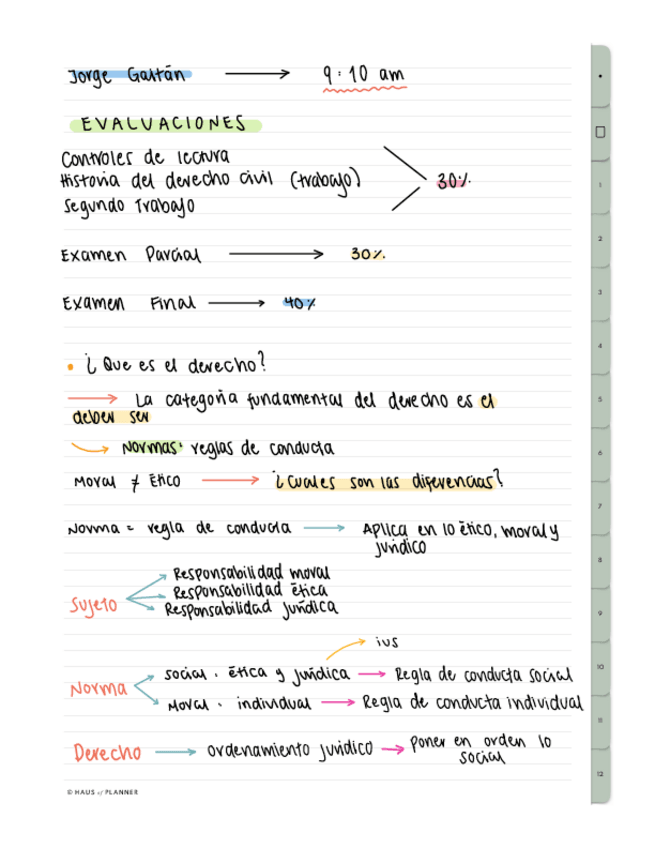 Jorge Gaitán → 9:10 am
EVALUACIONES
Controles de lectura
Historia del derecho civil (trabajo) 30%
Segundo Trabajo
Examen Parcial → 30%
Examen Final → 40%
• ¿Que es el derecho?
→ La categoría fundamental del derecho es el
deber ser
→ Normas: reglas de conducta
Moral ≠ Ético → ¿Cuales son las diferencias?
Norma = regla de conducta → Aplica en lo ético, moral y
jurídico
Responsabilidad moral
Responsabilidad ética
Sujeto Responsabilidad jurídica
ius
social · ética y jurídica → Regla de conducta social
Norma
Moral · individual → Regla de conducta individual
Derecho → Ordenamiento jurídico → Poner en orden lo
social
© HAUS of PLANNER
1
2
3
4
5
6
7
8
9
10
11
12